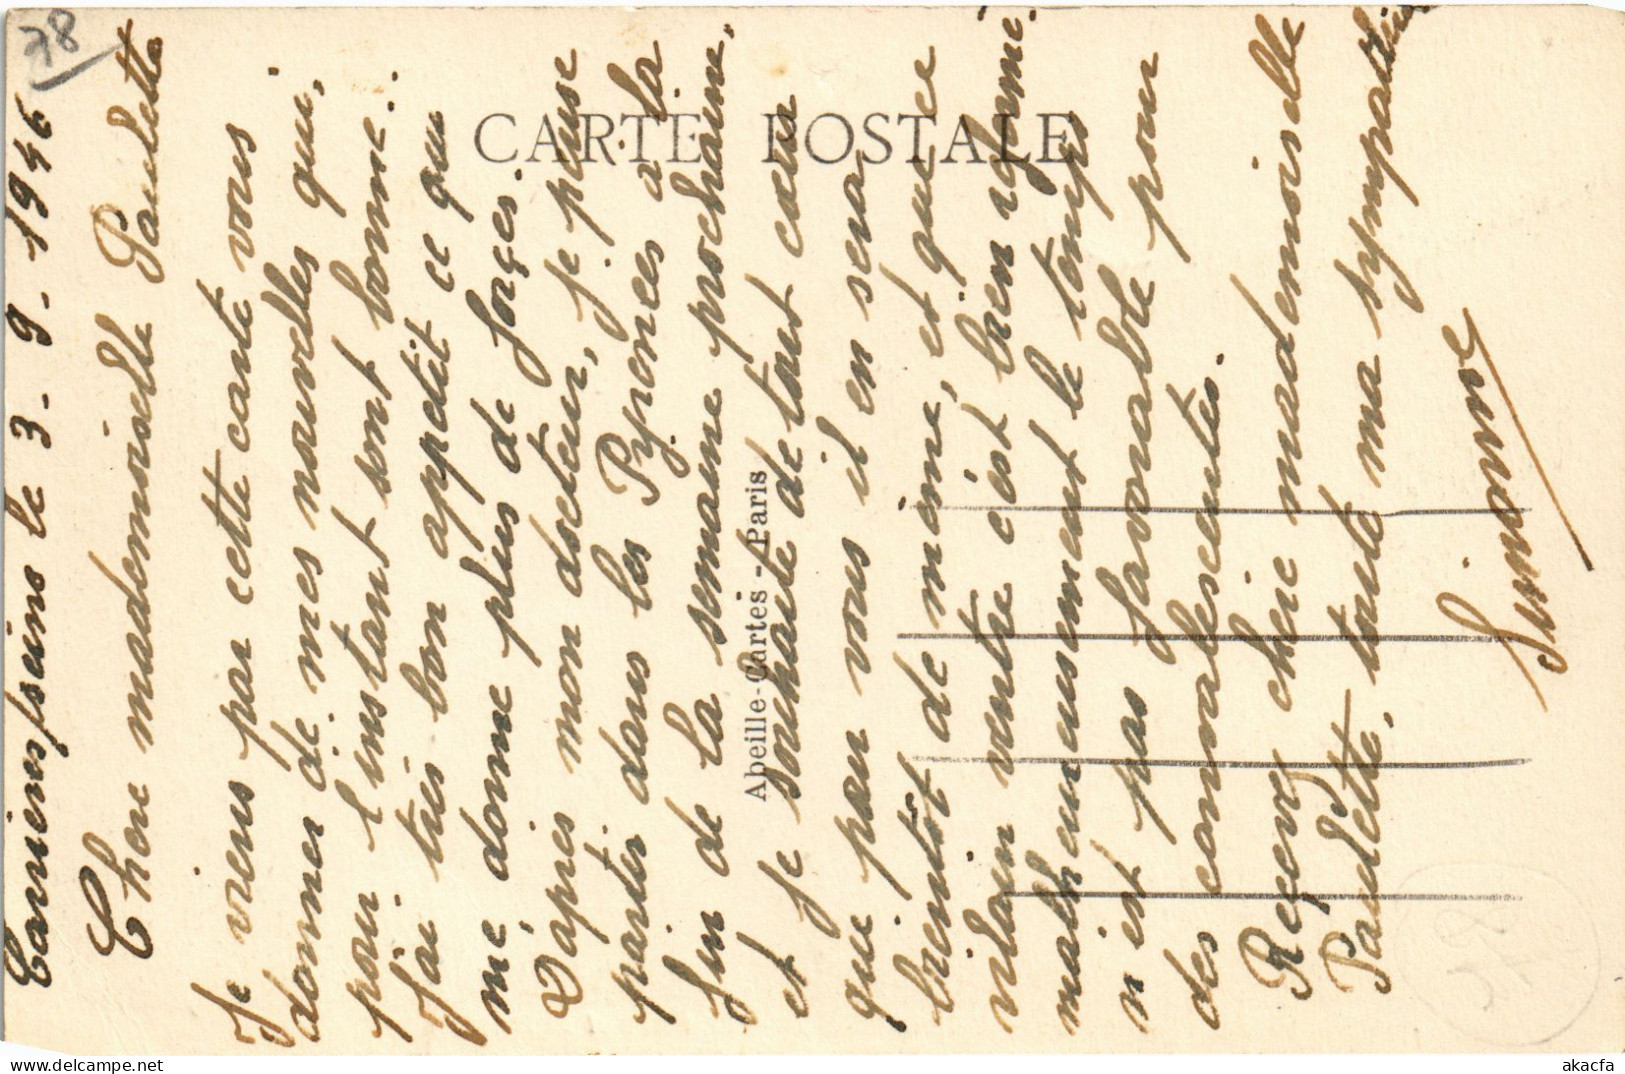 78
Carrières s/seine le 3 - 9 - 1946
Chère mademoiselle Paulette
Je viens par cette carte vous
donner de mes nouvelles qui,
pour l'instant sont bonne.
J'ai très bon appetit ce qui
me, donne plus de forçes.
D'après mon docteur, je pense
partir dans les Pyrenées à la
fin de la semaine prochaine,
et je souhaite de tout cœur
que pour vous il en sera
bientôt de même, et que ce
vilain ventre c'est bien reformé.
malheureusement le temps
n'est pas favorable pour
des convalescentes.
Reçevez chère mademoiselle
Paulette, toute ma sympathie
Simonne
CARTE POSTALE
Abeille-Cartes - Paris
akacfa